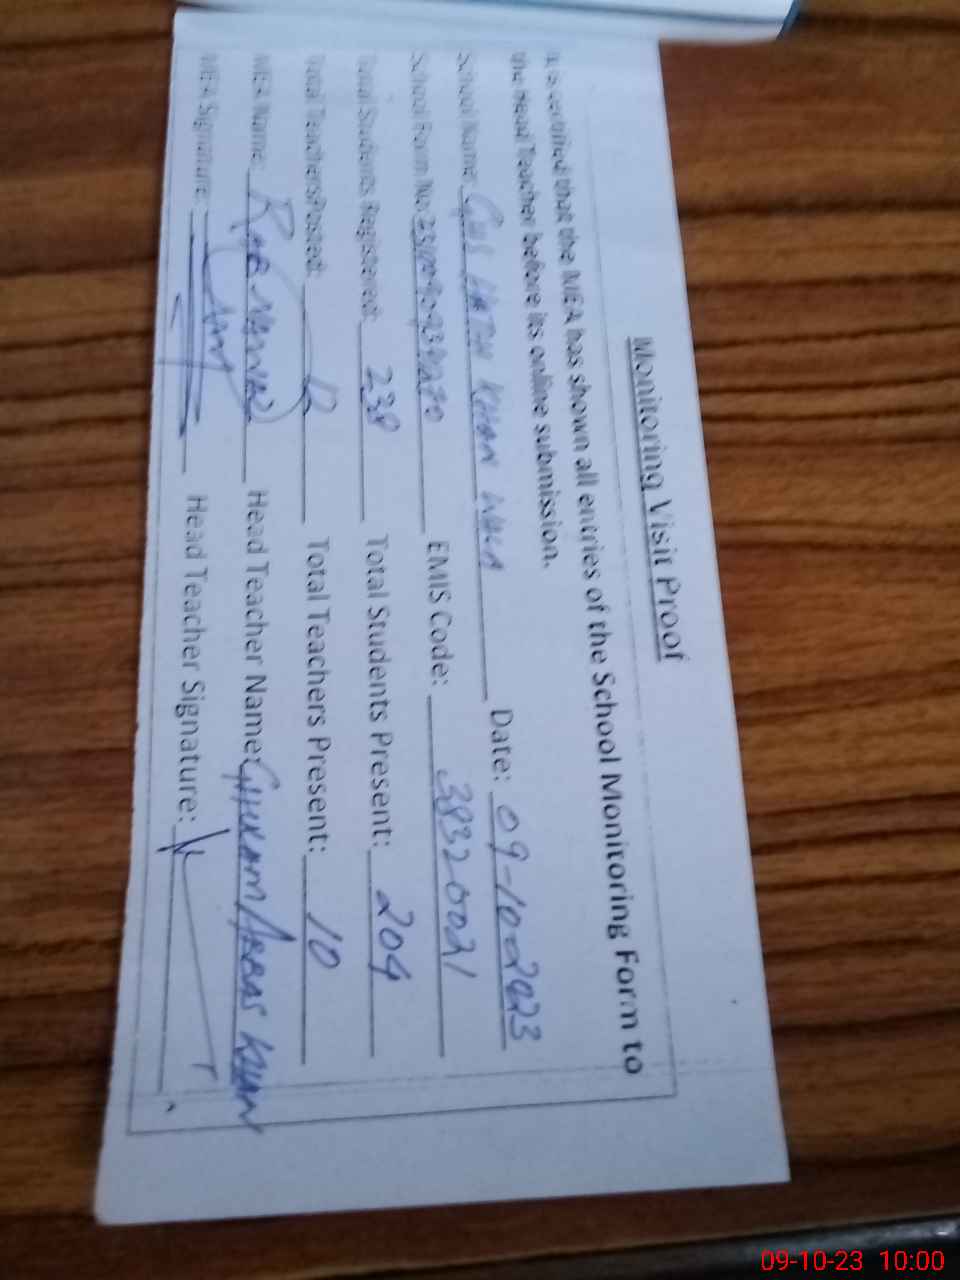 Monitoring Visit Proof
It is certified that the MEA has shown all entries of the School Monitoring Form to
the Head Teacher before its online submission.
School Name: GHS KHAN WALA Date: 09-10-2023
School Form No: EMIS Code: 38320021
Total Students Registered: 238 Total Students Present: 204
Total Teachers Posted: 12 Total Teachers Present: 10
MEA Name: Head Teacher Name: GHULAM ABBAS KHAN
MEA Signature: Head Teacher Signature:
09-10-23 10:00